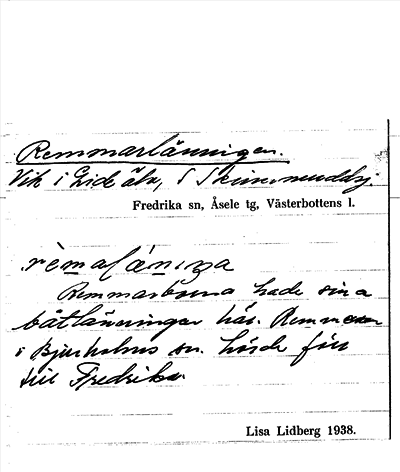 Remmarlänningen.
Vik i Lide älv, S Skinnmuddsj.
Fredrika sn, Åsele tg, Västerbottens l.
rèmaḷániŋa
Remmarborna hade sina
båtlänningar här. Remmaren
i Bjurholms sn. hörde förr
till Fredrika.
Lisa Lidberg 1938.